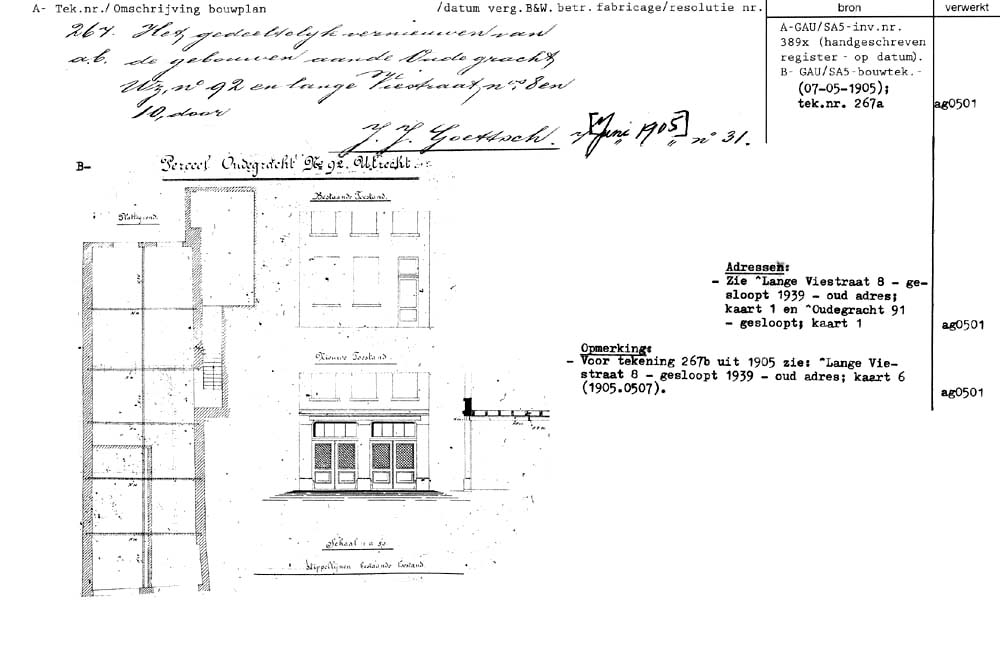 A- Tek.nr./Omschrijving bouwplan /datum verg.B&W.betr.fabricage/resolutie nr. bron verwerkt
267. Het gedeeltelijk vernieuwen van
a.b. de gebouwen aan de Oude gracht
Wz, no 92 en lange Viestraat, nrs 8 en
10, door
J. J. Goettsch. 7 [Juni 1905] no 31.
A-GAU/SA5-inv.nr.
389x (handgeschreven
register - op datum).
B- GAU/SA5-bouwtek.-
(07-05-1905);
tek.nr. 267a ag0501
B-
Perceel Oudegracht No 92. Utrecht
Plattegrond.
Bestaande Toestand.
Nieuwe Toestand.
Schaal 1 a 50
Stippellijnen bestaande toestand
Adressen:
- Zie ^Lange Viestraat 8 - ge-
sloopt 1939 - oud adres;
kaart 1 en ^Oudegracht 91
- gesloopt; kaart 1 ag0501
Opmerking:
- Voor tekening 267b uit 1905 zie: ^Lange Vie-
straat 8 - gesloopt 1939 - oud adres; kaart 6
(1905.0507). ag0501